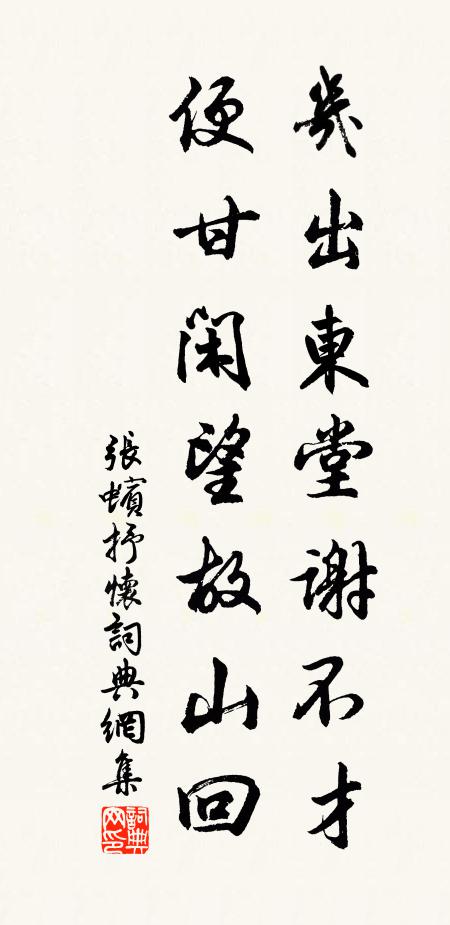 幾出東堂謝不才
便甘閑望故山回
張蠙抒懷詞典網集
詞典網印